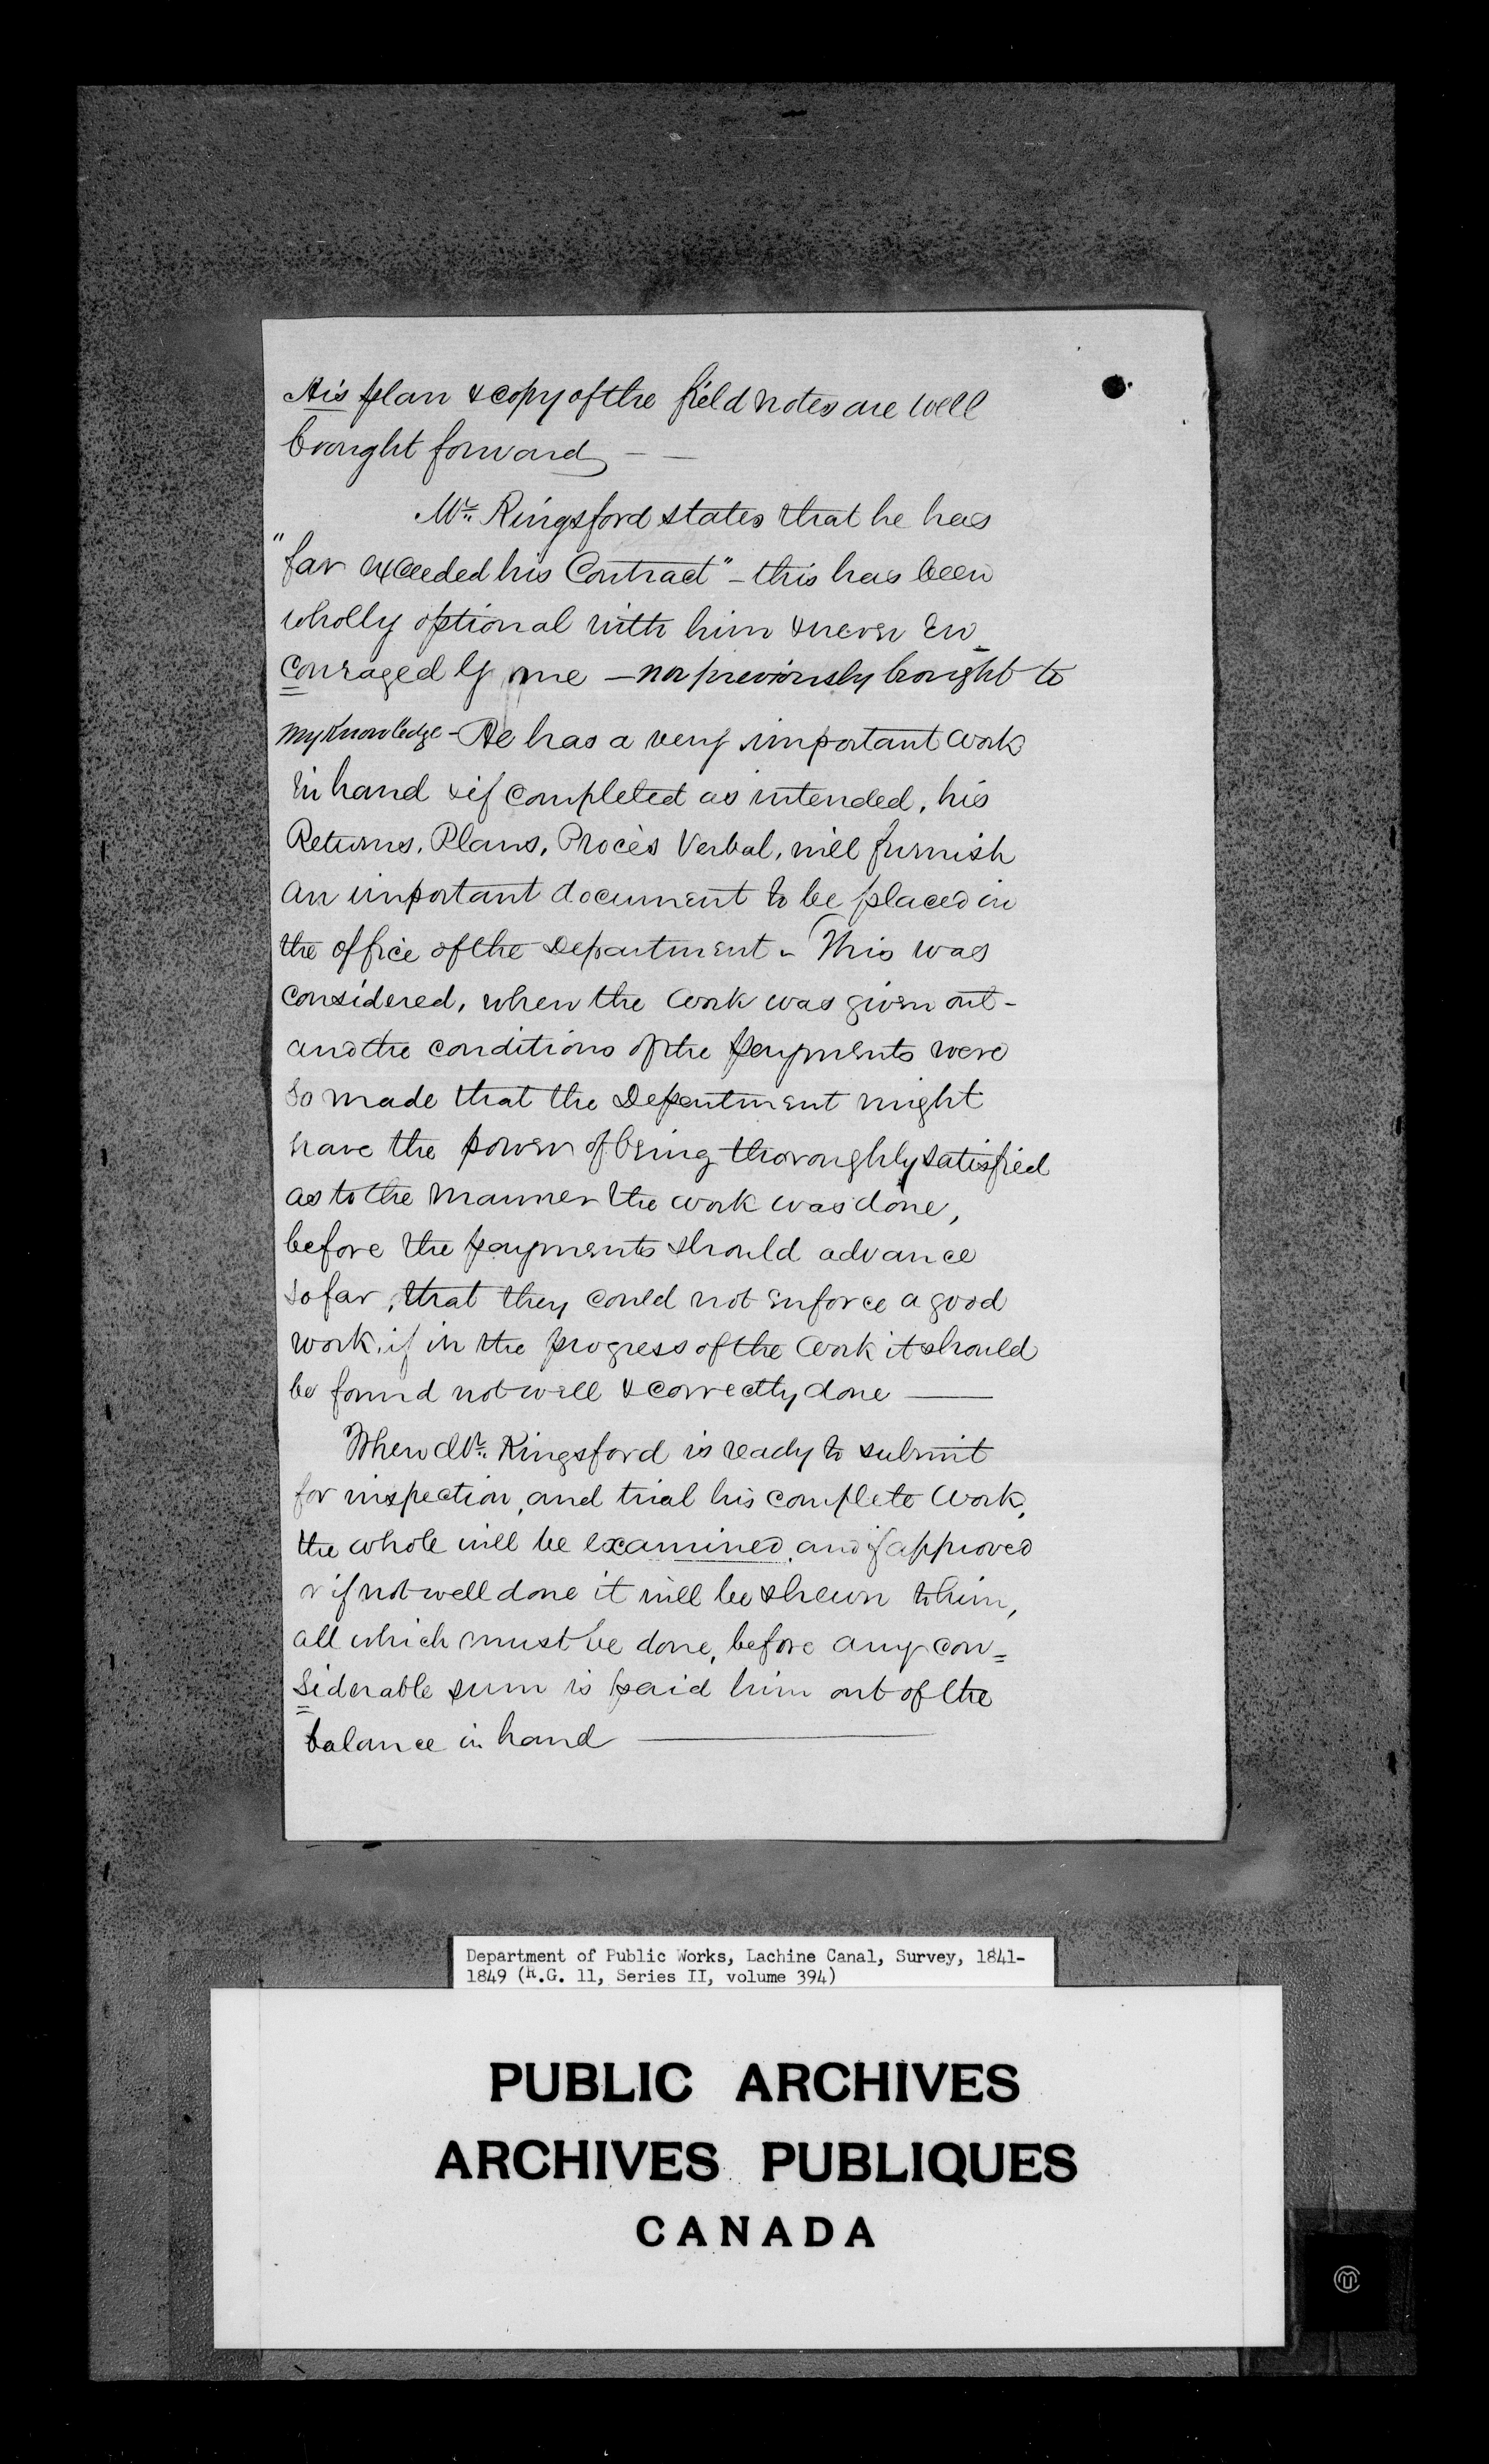 His plan & copy of the field notes are well
brought forward — —
Mr. Kingsford states that he has
"far exceeded his Contract" – this has been
wholly optional with him & never En_
couraged by me – nor previously brought to
my knowledge – He has a very important work
in hand & if completed as intended, his
Returns, Plans, Procès Verbal, will furnish
an important document to be placed in
the office of the Department – This was
considered, when the work was given out –
and the conditions of the payments were
so made that the Department might
have the power of being thoroughly satisfied
as to the manner the work was done,
before the payments should advance
so far, that they could not enforce a good
work, if in the progress of the work it should
be found not well & correctly done ——
When Mr. Kingsford is ready to submit
for inspection, and trial his complete work,
the whole will be examined, and if approved
or if not well done it will be shewn to him,
all which must be done, before any con=
siderable sum is paid him out of the
balance in hand ————
Department of Public Works, Lachine Canal, Survey, 1841-
1849 (R.G. 11, Series II, volume 394)
PUBLIC ARCHIVES
ARCHIVES PUBLIQUES
CANADA